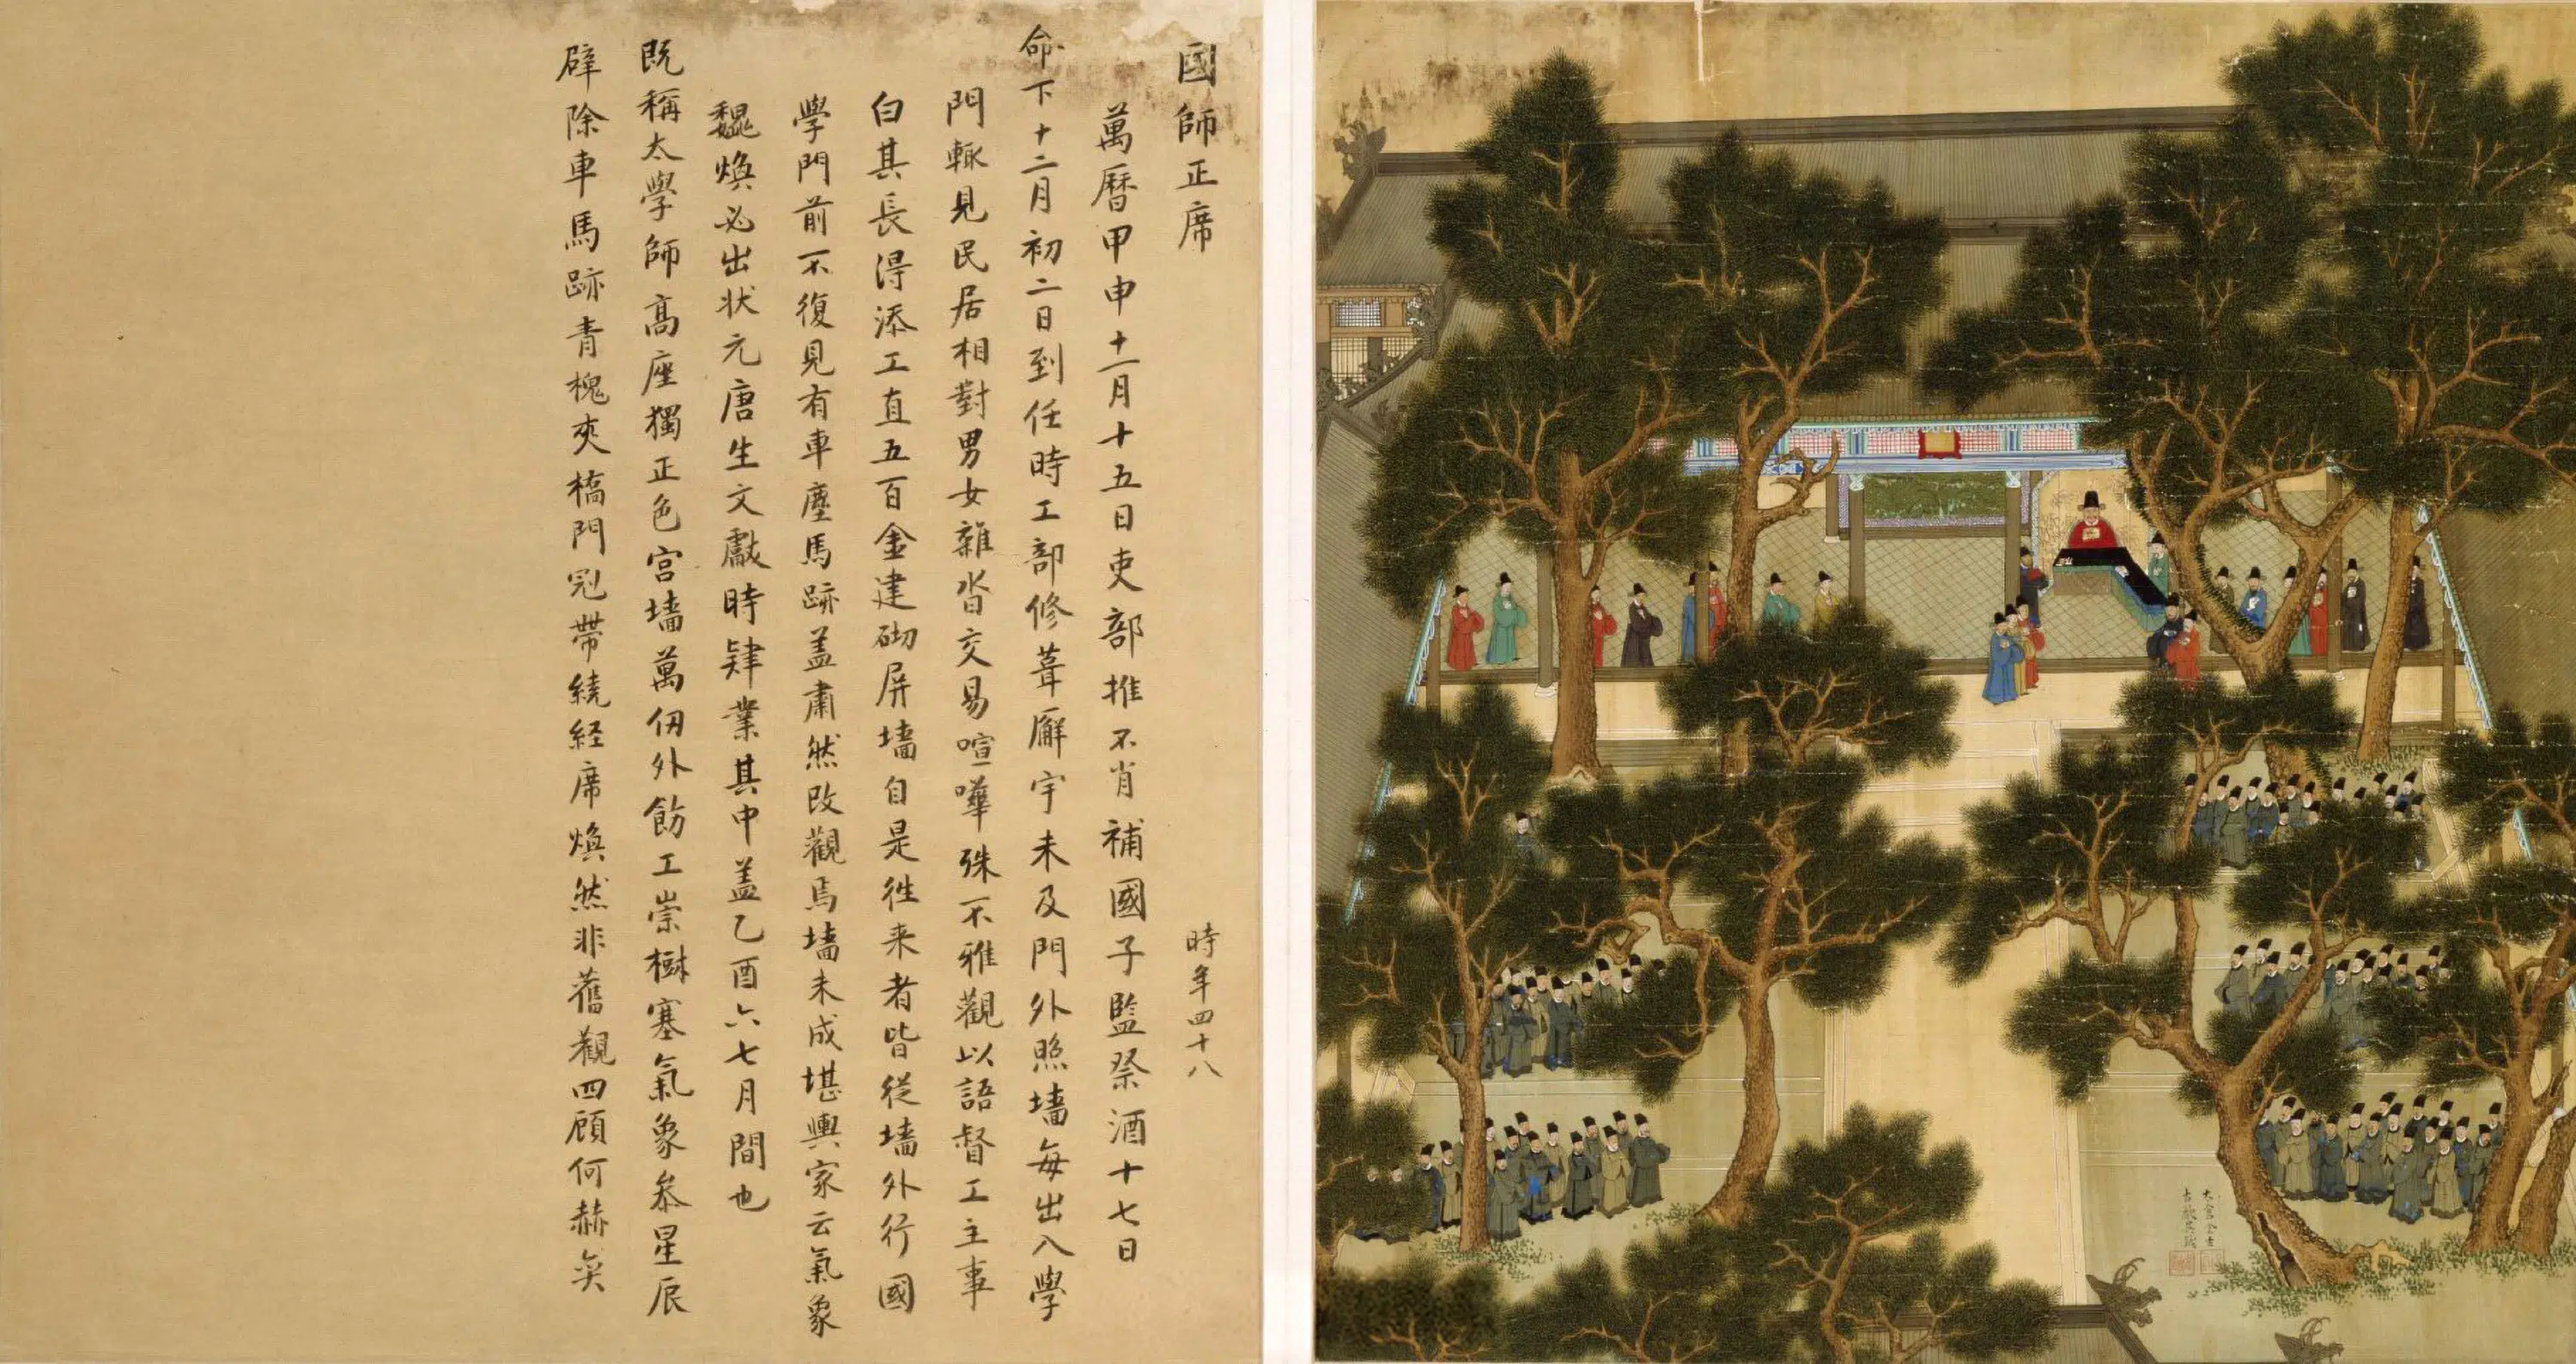 國師正席
時年四十八
萬曆甲申十一月十五日吏部推不肖補國子監祭酒十七日
命下十二月初二日到任時工部修葺廨宇未及門外照墻每出入學
門輒見民居相對男女雜沓交易喧嘩殊不雅觀以語督工主事
白其長淂添工直五百金建砌屏墻自是徃来者皆從墻外行國
學門前不復見有車塵馬跡盖肅然改觀焉墻未成堪輿家云氣象
巍煥必出状元唐生文獻時肄業其中盖乙酉六七月間也
既稱太學師高座獨正色宮墻萬仞外飭工崇樹塞氣象叅星辰
辟除車馬跡青槐夾橋門冠帶繞経席煥然非舊觀四顧何赫奕